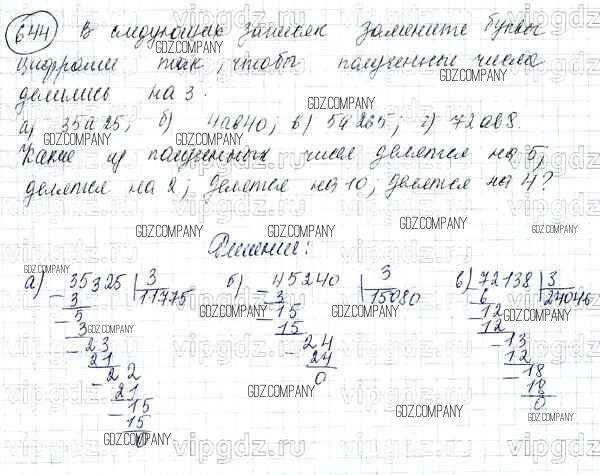 644 В следующих записях замените буквы
цифрами так, чтобы полученные числа
делились на 3.
а) 35а25, б) 4ав40; в) 5а265; г) 72ав8.
Какие из полученных чисел делятся на 5;
делятся на 2; делятся на 10; делятся на 4?
Решение:
а) 35325 | 3
11775
- 3
5
3
- 23
21
- 22
21
- 15
15
0
б) - 45240 | 3
15080
3
- 15
15
- 24
24
0
в) 72138 | 3
24046
- 6
- 12
12
- 13
12
- 18
18
0
GDZ.COMPANY
vipgdz.ru